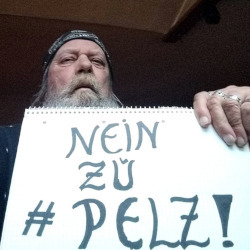 NEIN
ZU
# PELZ!